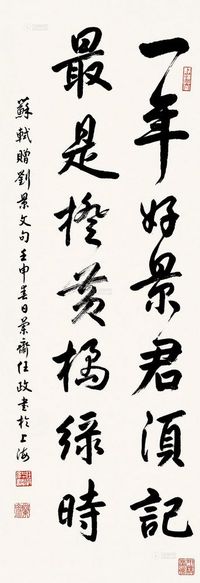 一年好景君須記
最是橙黄橘緑時
蘇軾贈劉景文句壬申春日蘭齋任政書於上海